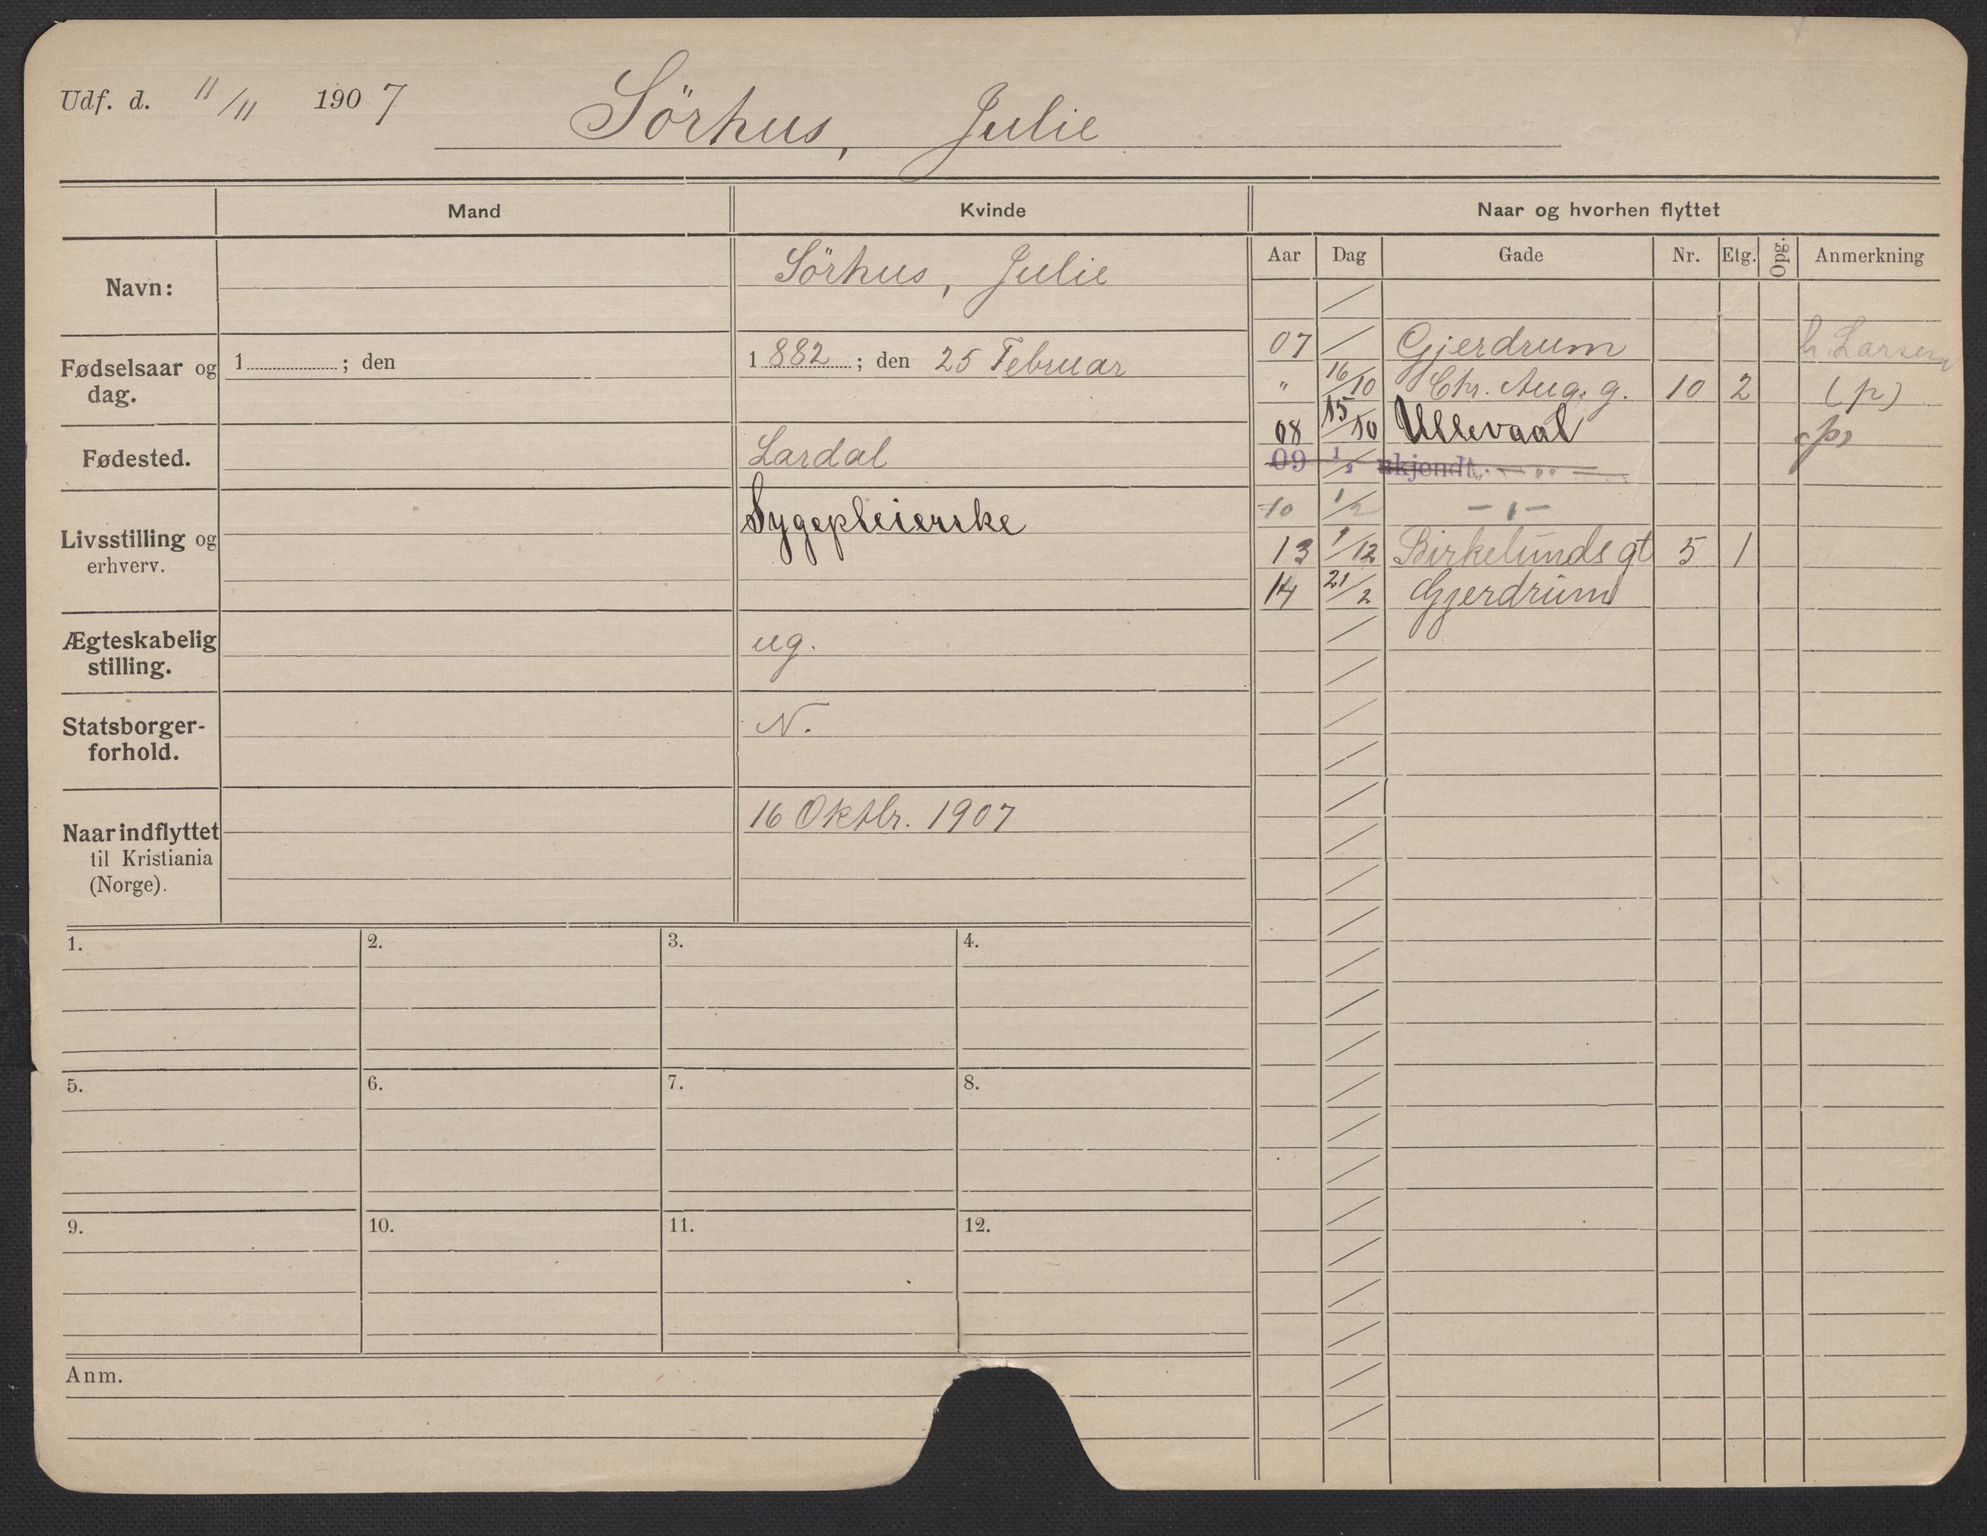 Udf. d. 11/11 1907 Sörhus, Julie
Mand Kvinde Naar og hvorhen flyttet
Aar Dag Gade Nr. Etg. Opg. Anmerkning
Navn: Sörhus, Julie
Fødselsaar og dag. 1 ; den 1882 ; den 25 Februar
Fødested. Lardal
Livsstilling og erhverv. Sygepleierske
Ægteskabelig stilling. ug.
Statsborgerforhold. N.
Naar indflyttet til Kristiania (Norge). 16 Oktbr. 1907
07 / Gjerdrum h. Larsen
" 16/10 Chr. Aug. g. 10 2 (p)
08 15/10 Ullevaal (p)
09 1/2 ukjendt
10 1/2 — " —
13 1/12 Birkelunds gt 5 1
14 21/2 Gjerdrum
1. 2. 3. 4.
5. 6. 7. 8.
9. 10. 11. 12.
Anm.